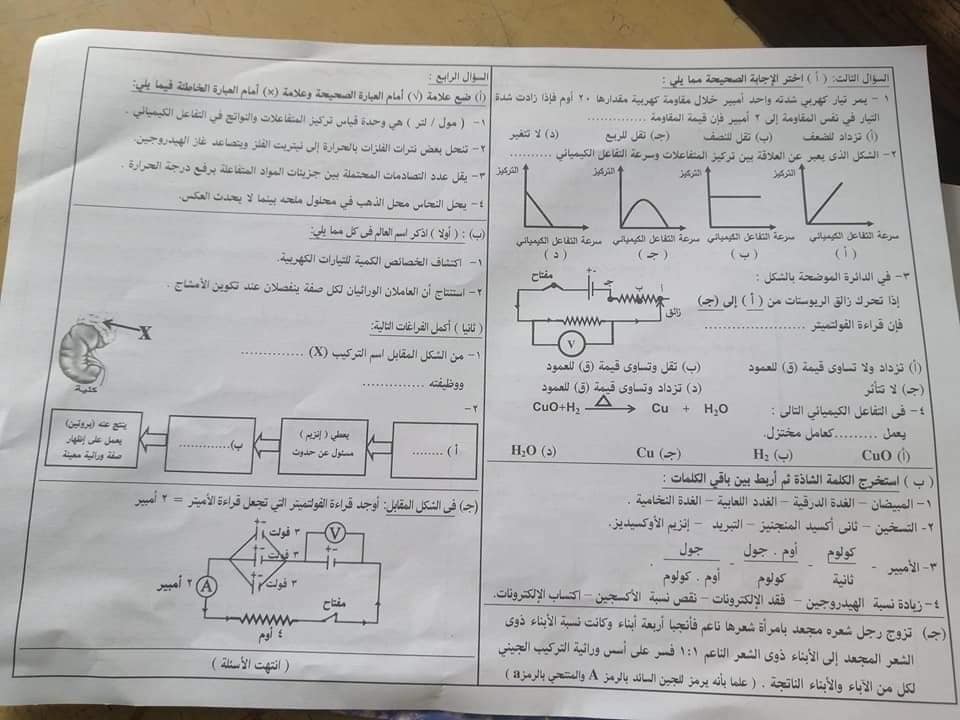 السؤال الثالث: ( أ ) اختر الإجابة الصحيحة مما يلي :
١ - يمر تيار كهربي شدته واحد أمبير خلال مقاومة كهربية مقدارها ٢٠ أوم فإذا زادت شدة
التيار في نفس المقاومة إلى ٢ أمبير فإن قيمة المقاومة ..............
(أ) تزداد للضعف (ب) تقل للنصف (جـ) تقل للربع (د) لا تتغير
٢- الشكل الذى يعبر عن العلاقة بين تركيز المتفاعلات وسرعة التفاعل الكيميائي ..........
التركيز التركيز التركيز التركيز
سرعة التفاعل الكيميائي سرعة التفاعل الكيميائي سرعة التفاعل الكيميائي سرعة التفاعل الكيميائي
( أ ) ( ب ) ( جـ ) ( د )
٣- في الدائرة الموضحة بالشكل :
إذا تحرك زالق الريوستات من ( أ ) إلى (جـ)
فإن قراءة الفولتميتر ....................
مفتاح
+ -
جـ ب أ
زالق
V
(أ) تزداد ولا تساوى قيمة (ق) للعمود (ب) تقل وتساوى قيمة (ق) للعمود
(جـ) لا تتأثر (د) تزداد وتساوى قيمة (ق) للعمود
٤- فى التفاعل الكيميائي التالى : CuO+H₂ Δ→ Cu + H₂O
يعمل .........كعامل مختزل.
(أ) CuO (ب) H₂ (جـ) Cu (د) H₂O
( ب ) استخرج الكلمة الشاذة ثم أربط بين باقي الكلمات :
١- المبيضان – الغدة الدرقية – الغدد اللعابية – الغدة النخامية .
٢- التسخين – ثانى أكسيد المنجنيز – التبريد – إنزيم الأوكسيديز.
٣- الأمبير - كولوم / ثانية - أوم . جول / كولوم - جول / أوم . كولوم .
٤- زيادة نسبة الهيدروجين – فقد الإلكترونات – نقص نسبة الأكسجين – اكتساب الإلكترونات.
(جـ) تزوج رجل شعره مجعد بامرأة شعرها ناعم فأنجبا أربعة أبناء وكانت نسبة الأبناء ذوى
الشعر المجعد إلى الأبناء ذوى الشعر الناعم ١:١ فسر على أسس وراثية التركيب الجيني
لكل من الآباء والأبناء الناتجة . ( علما بأنه يرمز للجين السائد بالرمز A والمتنحي بالرمز a )
السؤال الرابع :
(أ) ضع علامة (√) أمام العبارة الصحيحة وعلامة (×) أمام العبارة الخاطئة فيما يلي:
١- ( مول / لتر ) هي وحدة قياس تركيز المتفاعلات والنواتج في التفاعل الكيميائي .
٢- تنحل بعض نترات الفلزات بالحرارة إلى نيتريت الفلز ويتصاعد غاز الهيدروجين.
٣- يقل عدد التصادمات المحتملة بين جزيئات المواد المتفاعلة برفع درجة الحرارة .
٤- يحل النحاس محل الذهب في محلول ملحه بينما لا يحدث العكس.
(ب) : ( أولا ) اذكر اسم العالم فى كل مما يلي:
١- اكتشاف الخصائص الكمية للتيارات الكهربية.
٢- استنتاج أن العاملان الوراثيان لكل صفة ينفصلان عند تكوين الأمشاج .
( ثانيا ) أكمل الفراغات التالية:
١- من الشكل المقابل اسم التركيب (X) .............
ووظيفته .............
X
كلية
٢-
أ ) ........
يعطي ( إنزيم )
مسئول عن حدوث
ب).............
ينتج عنه (بروتين)
يعمل على إظهار
صفة وراثية معينة
(جـ) فى الشكل المقابل: أوجد قراءة الفولتميتر التي تجعل قراءة الأميتر = ٢ أمبير
+ -
٣ فولت
٣ فولت
٣ فولت
V
+ -
A
٢ أمبير
مفتاح
٤ أوم
( انتهت الأسئلة )